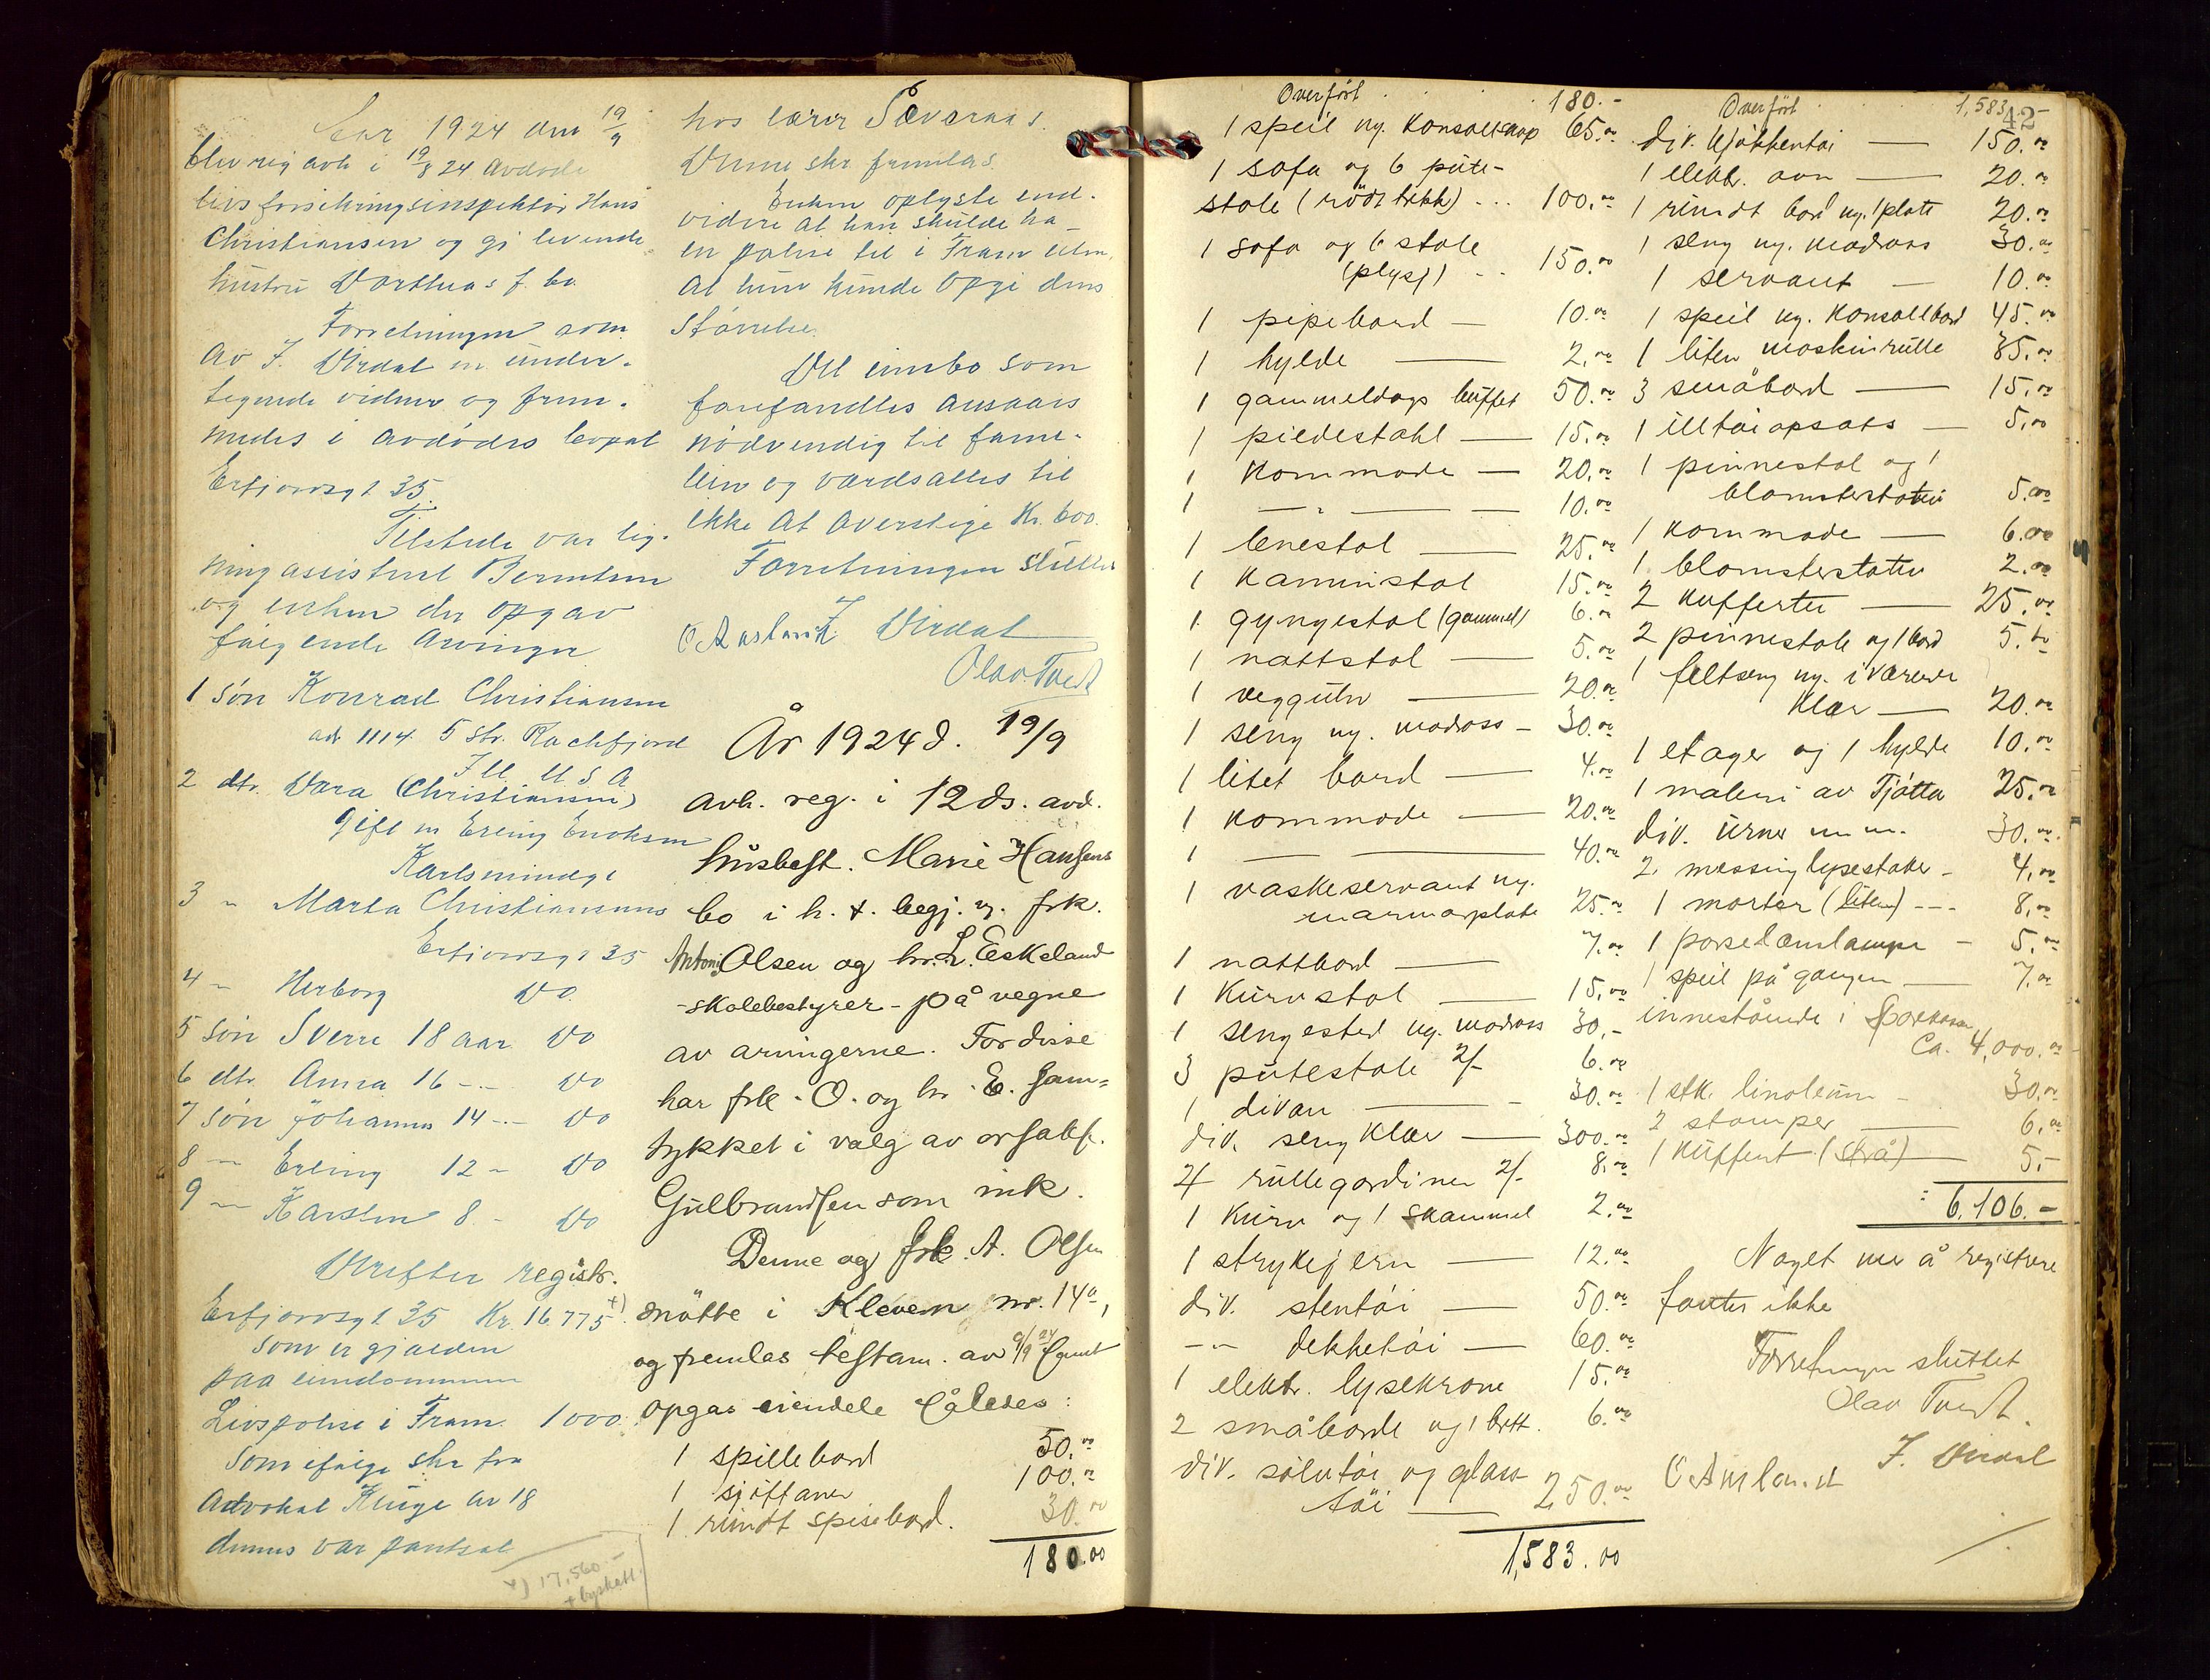 Aar 1924 den 19/9
blev reg avh i 19/8 24 avdøde
livsforsikringsinspektør Hans
Christiansen og gj levende
hustru Dortheas f. bo
Forretningen som
av J. Virdal m under-
tegnede vidner og frem-
medes i avdødes bopæl
Erfjordsgt 35.
Tilstede var lig-
ningassistent Berntsen
og enken der opgav
følgende arvinger
1 søn Konrad Christiansen
adr 1114. 5 Str. Rockfjord
Ill. U S A
2 dtr. Dora (Christiansen)
gift m Erling Enoksen
Karlsmindegt
3 " Marta Christiansens
Erfjordsgt 35
4 " Herborg Do.
5 søn Sverre 18 aar Do
6 dtr. Anna 16 -"- Do
7 søn Johannes 14 -"- Do
8 " Erling 12 " Do
9 " Karsten 8 - Do
Derefter registr.
Erfjordsgt 35 Kr. 16.775 +)
som er gjælden
paa eiendommen
Livspolise i Fram. 1000.
som ifølge skr fra
Advokat Kluge av 18
dennes var pantsat
+) 17,560.-
+ byskatt.
hos lærer Sævernas.
Denne skr fremlas.
Enken oplyste end-
videre at han skulde ha
en polise til i Fram uten
at hun kunde opgi dens
størrelse.
Det innbo som
forefandtes ansaaes
nødvendig til fami-
lien og værdsattes til
ikke at overstige Kr. 600.
Forretningen sluttet
O Aasland J. Virdal
Olav Tvedt
År 1924 d. 19/9
avh. reg. i 12 ds. avd.
husbest. Marie Hansens
bo i h. t. begj. v. frk.
Antoni Olsen og hr. L. Eskeland
- skolebestyrer - på vegne
av arvingerne. For disse
har frk. O. og hr. E. sam=
tykket i valg av orsakf.
Gulbrandsen som ink.
Denne og frk. A. Olsen
møtte i Kleven nr. 14a,
og fremlas testam. av 9/9 24 samt
opgav eiendele således:
1 spillebord 50.00
1 sjiffaner 100.00
1 rundt spisebord. 30.00
180.00
Overført 180.-
1 speil og konsollskap 65.00
1 sofa og 6 pute-
stole (rødt trekk) ... 100.00
1 sofa og 6 stole
(plysj) .. 150.00
1 pipebord — 10.00
1 hylde — 2.00
1 gammeldags buffet 50.00
1 piedestahl — 15.00
1 kommode — 20.00
1 — " — 10.00
1 lenestol — 25.00
1 kaminstol 15.00
1 gyngestol (gammel) 6.00
1 nattstol — 5.00
1 veggur — 20.00
1 seng og madrass - 30.00
1 litet bord — 4.00
1 kommode — 20.00
1 — — 40.00
1 vaskeservant og
marmorplate 25.00
1 nattbord — 7.00
1 kurvstol — 15.00
1 sengested og madrass 30.-
3 putestole 2/- 6.00
1 divan — 30.00
div. sengklær — 300.00
4 rullegardiner 2/- 8.00
1 kurv og 1 skammel 2.00
1 strykejern — 12.00
div. stentøi — 50.00
-"- dekketøi — 60.00
1 elektr. lysekrone 15.00
2 småborde og 1 brett. 6.00
div. sølvtøi og glass
tøi — 250.00
1,583.00
Overført 1,583.-
42
div. kjøkkentøi — 150.00
1 elektr. ovn — 20.00
1 rundt bord og 1 plate 20.00
1 seng og madrass 30.00
1 servant — 10.00
1 speil og konsollbord 45.00
1 liten maskinrulle 35.00
3 småbord — 15.00
1 illtøiopsats — 5.00
1 pinnestol og 1
blomsterstativ 5.00
1 kommode — 6.00
1 blomsterstativ 2.00
2 kufferter — 25.00
2 pinnestole og 1 bord 5.00
1 feltseng og iværende
klær — 20.00
1 etager og 1 hylde 10.00
1 maleri av Tjøtta 25.00
div. urner m.m. 30.00
2 messing lysestaker - 4.00
1 morter (liten) --- 8.00
1 porselænslampe - 5.00
1 speil på gangen — 7.00
innestående i Sparekassen
Ca. 4,000.00
1 stk. linoleum - 30.00
2 stamper — 6.00
1 kuffert (strå) — 5.-
: 6,106.-
Noget mer å registrere
fantes ikke
Forretningen sluttet
Olav Tvedt.
O Aasland J. Virdal